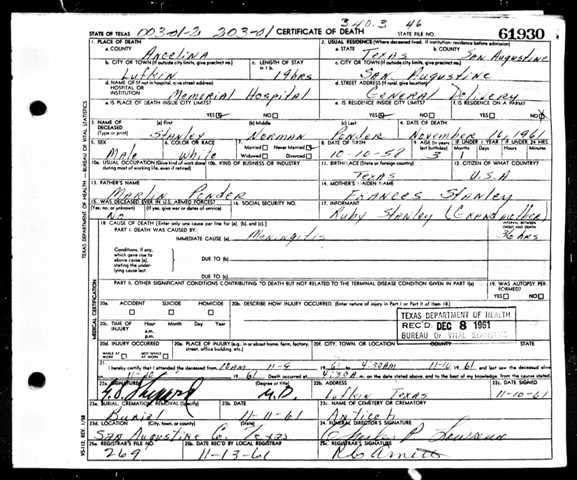 003-01-2 203-01
340.3 46
STATE OF TEXAS CERTIFICATE OF DEATH STATE FILE NO. 61930
1. PLACE OF DEATH 2. USUAL RESIDENCE (Where deceased lived. If institution: residence before admission)
a. COUNTY Angelina a. STATE Texas b. COUNTY San Augustine
b. CITY OR TOWN (If outside city limits, give precinct no.) c. LENGTH OF STAY in 1 b. c. CITY OR TOWN (If outside city limits, give precinct no.)
Lufkin 19hrs San Augustine
d. NAME OF (If not in hospital, give street address) HOSPITAL OR INSTITUTION d. STREET ADDRESS (If rural, give location)
Memorial Hospital General Delivery
e. IS PLACE OF DEATH INSIDE CITY LIMITS? e. IS RESIDENCE INSIDE CITY LIMITS? f. IS RESIDENCE ON A FARM?
YES NO YES NO YES NO
3. NAME OF DECEASED (Type or print) (a) First (b) Middle (c) Last 4. DATE OF DEATH
Stanley Norman Ponder November 10, 1961
5. SEX 6. COLOR OR RACE 7. Married Never Married Widowed Divorced 8. DATE OF BIRTH 9. AGE (In years last birthday) IF UNDER 1 YEAR IF UNDER 24 HRS
Male White 10-10-58 3 1
10a. USUAL OCCUPATION (Give kind of work done during most of working life, even if retired) 10b. KIND OF BUSINESS OR INDUSTRY 11. BIRTHPLACE (State or foreign country) 12. CITIZEN OF WHAT COUNTRY?
Texas U.S.A
13. FATHER'S NAME 14. MOTHER'S MAIDEN NAME
Marlin Ponder Frances Stanley
15. WAS DECEASED EVER IN U.S. ARMED FORCES? 16. SOCIAL SECURITY NO. 17. INFORMANT
(Yes, no, or unknown) (If yes, give war or dates of service)
No Ruby Stanley (Grandmother)
18. CAUSE OF DEATH (Enter only one cause per line for (a), (b), and (c).) INTERVAL BETWEEN ONSET AND DEATH
PART I. DEATH WAS CAUSED BY:
IMMEDIATE CAUSE (a) Meningitis 36 hrs
Conditions, if any, which gave rise to above cause (a), stating the underlying cause last
DUE TO (b)
DUE TO (c)
PART II. OTHER SIGNIFICANT CONDITIONS CONTRIBUTING TO DEATH BUT NOT RELATED TO THE TERMINAL DISEASE CONDITION GIVEN IN PART I(a) 19. WAS AUTOPSY PERFORMED?
YES NO
20a. ACCIDENT SUICIDE HOMICIDE 20b. DESCRIBE HOW INJURY OCCURRED. (Enter nature of injury in Part I or Part II of item 18.)
TEXAS DEPARTMENT OF HEALTH
REC'D DEC 8 1961
BUREAU OF VITAL STATISTICS
20c. TIME OF INJURY Hour Month Day Year
a.m.
p.m.
20d. INJURY OCCURRED 20e. PLACE OF INJURY (e.g., in or about home, farm, factory, street, office building, etc.) 20f. CITY, TOWN, OR LOCATION COUNTY STATE
WHILE AT WORK NOT WHILE AT WORK
21. I hereby certify that I attended the deceased from 10AM 11-9 to 4:30AM 11-10 61 and last saw the deceased alive
11-10 61 Death occurred at 4:30 a.m. on the date stated above, and to the best of my knowledge, from the causes stated.
22a. SIGNATURE (Degree or title) 22b. ADDRESS 22c. DATE SIGNED
M.D. Lufkin Texas 11-10-61
23a. BURIAL, CREMATION, REMOVAL (Specify) 23b. DATE 23c. NAME OF CEMETERY OR CREMATORY
Burial 11-11-61 Antioch
23d. LOCATION (City, town, or county) (State) 24. FUNERAL DIRECTOR'S SIGNATURE
San Augustine Co. Texas
25a. REGISTRAR'S FILE NO. 25b. DATE REC'D BY LOCAL REGISTRAR 25c. REGISTRAR'S SIGNATURE
269 11-13-61
TEXAS DEPARTMENT OF HEALTH — BUREAU OF VITAL STATISTICS
MEDICAL CERTIFICATION